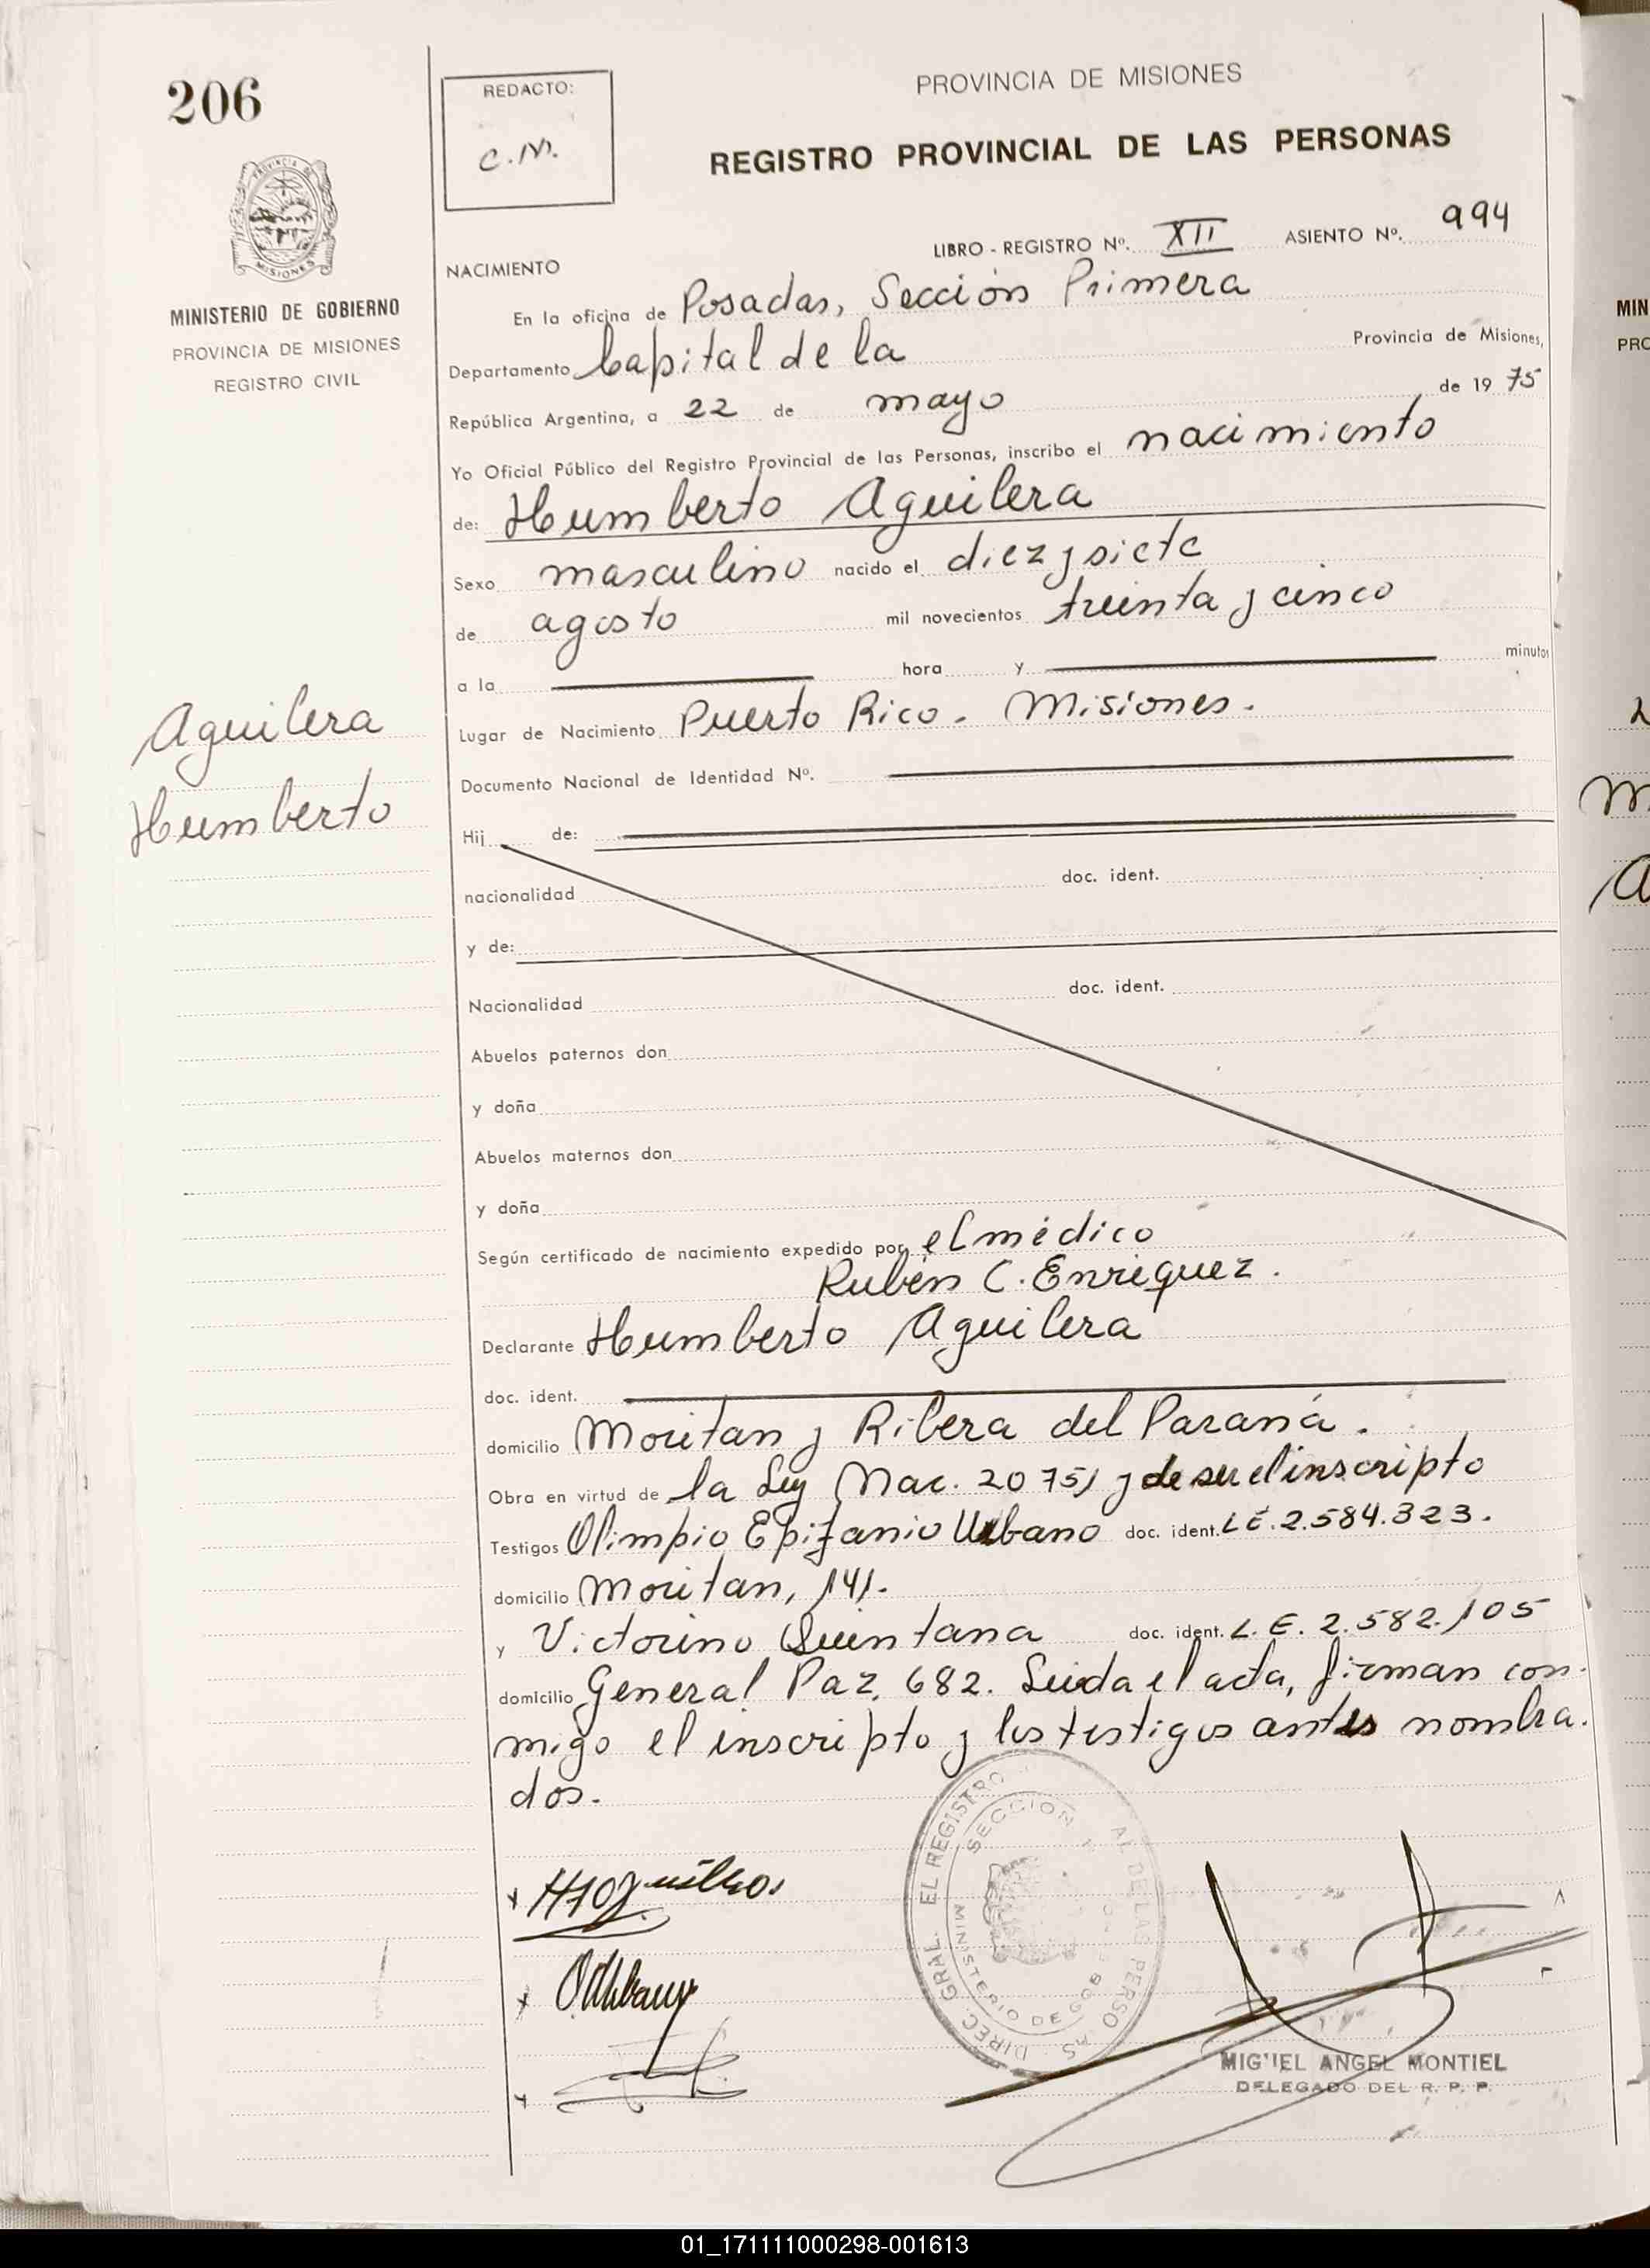 206
REDACTO:
C.M.
PROVINCIA DE MISIONES
REGISTRO PROVINCIAL DE LAS PERSONAS
LIBRO - REGISTRO Nº. XII ASIENTO Nº. 994
MISIONES
MINISTERIO DE GOBIERNO
PROVINCIA DE MISIONES
REGISTRO CIVIL
NACIMIENTO
En la oficina de Posadas, Sección Primera
Departamento Capital de la Provincia de Misiones,
República Argentina, a 22 de mayo de 1975
Yo Oficial Público del Registro Provincial de las Personas, inscribo el nacimiento
de: Humberto Aguilera
Sexo masculino nacido el diez y siete
de agosto mil novecientos treinta y cinco
a la hora y minutos
Aguilera
Humberto
Lugar de Nacimiento Puerto Rico. Misiones.
Documento Nacional de Identidad Nº.
Hij de:
nacionalidad doc. ident.
y de:
Nacionalidad doc. ident.
Abuelos paternos don
y doña
Abuelos maternos don
y doña
Según certificado de nacimiento expedido por el médico
Rubén C. Enriquez.
Declarante Humberto Aguilera
doc. ident.
domicilio Moritan y Ribera del Paraná.
Obra en virtud de la Ley Nac. 20751 y de ser el inscripto
Testigos Olimpio Epifanio Urbano doc. ident. L E. 2.584.323.
domicilio Moritan, 141.
y Victorino Quintana doc. ident. L. E. 2.582.105
domicilio General Paz, 682. Leida el acta, firman con-
migo el inscripto y los testigos antes nombra-
dos.
DIREC. GRAL. EL REGISTRO AL DE LAS PERSO AS
SECCION
MINISTERIO DE GOB
MIGUEL ANGEL MONTIEL
DELEGADO DEL R. P. P.
MIN
PRO
01_171111000298-001613